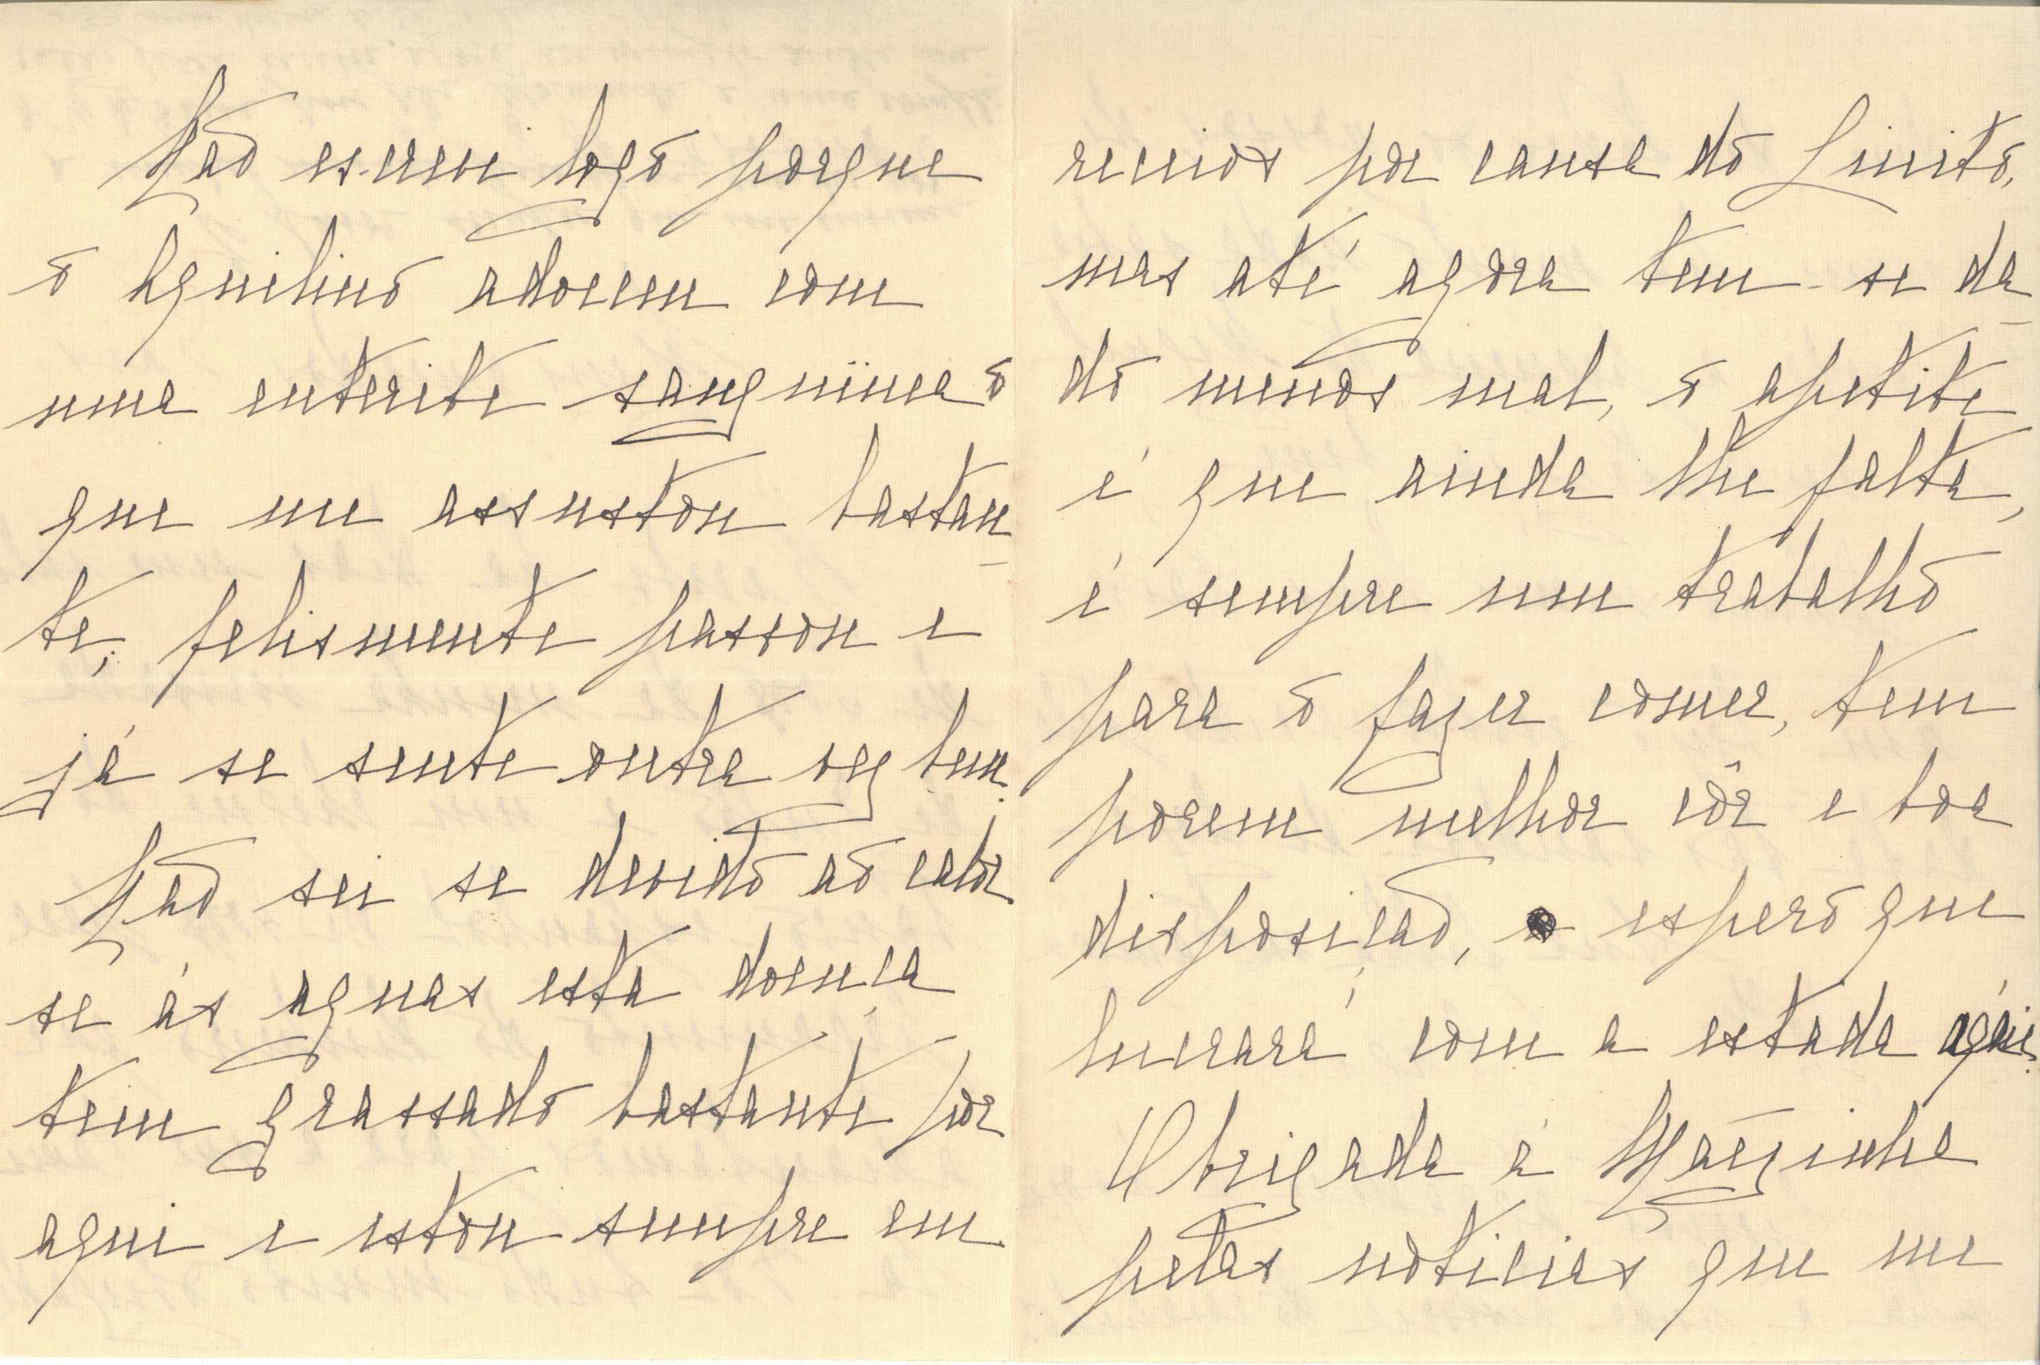 Não escrevi logo porque
o Aquilino adoeceu com
uma enterite sanguinea o
que me assustou bastan-
te; felismente passou e
já se sente outra vez bem.
Não sei se devido ao calor
se ás aguas esta doença
tem grassado bastante por
aqui e estou sempre em
receios por causa do Linito,
mas até agora tem-se da-
do menos mal, o apetite
é que ainda lhe falta,
é sempre um trabalho
para o fazer comer, tem
porem melhor côr e boa
disposição, espero que
lucrará com a estada aqui.
Obrigada á Mãezinha
pelas noticias que me